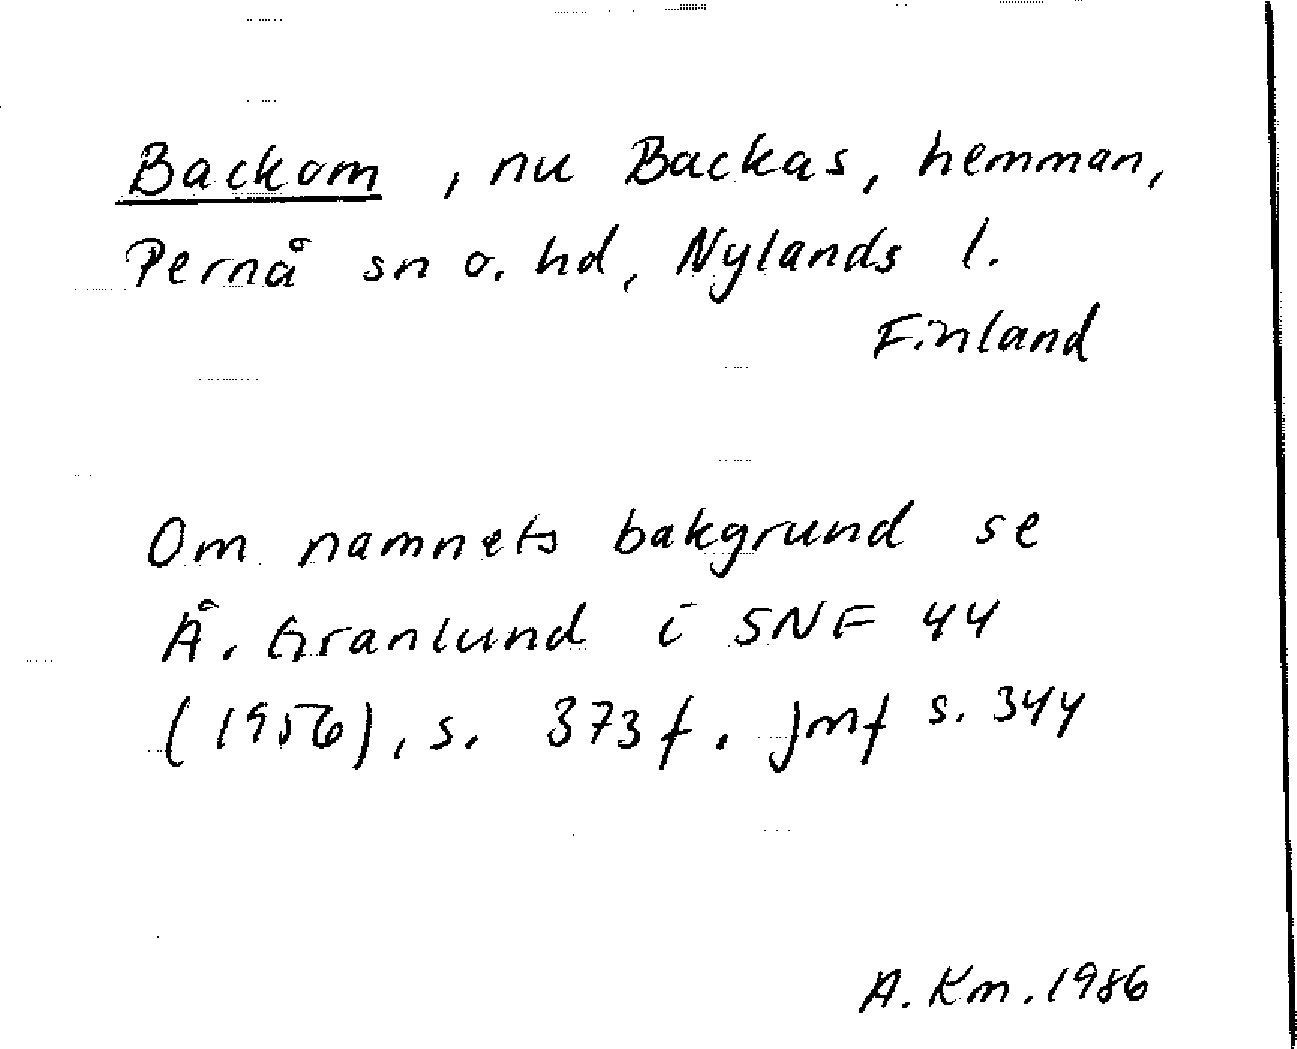 Backom, nu Backas, hemman,
Pernå sn o. hd, Nylands l.
Finland
Om namnets bakgrund se
Å. Granlund i SNF 44
(1956), s. 373 f. jmf s. 344
A. Km. 1986